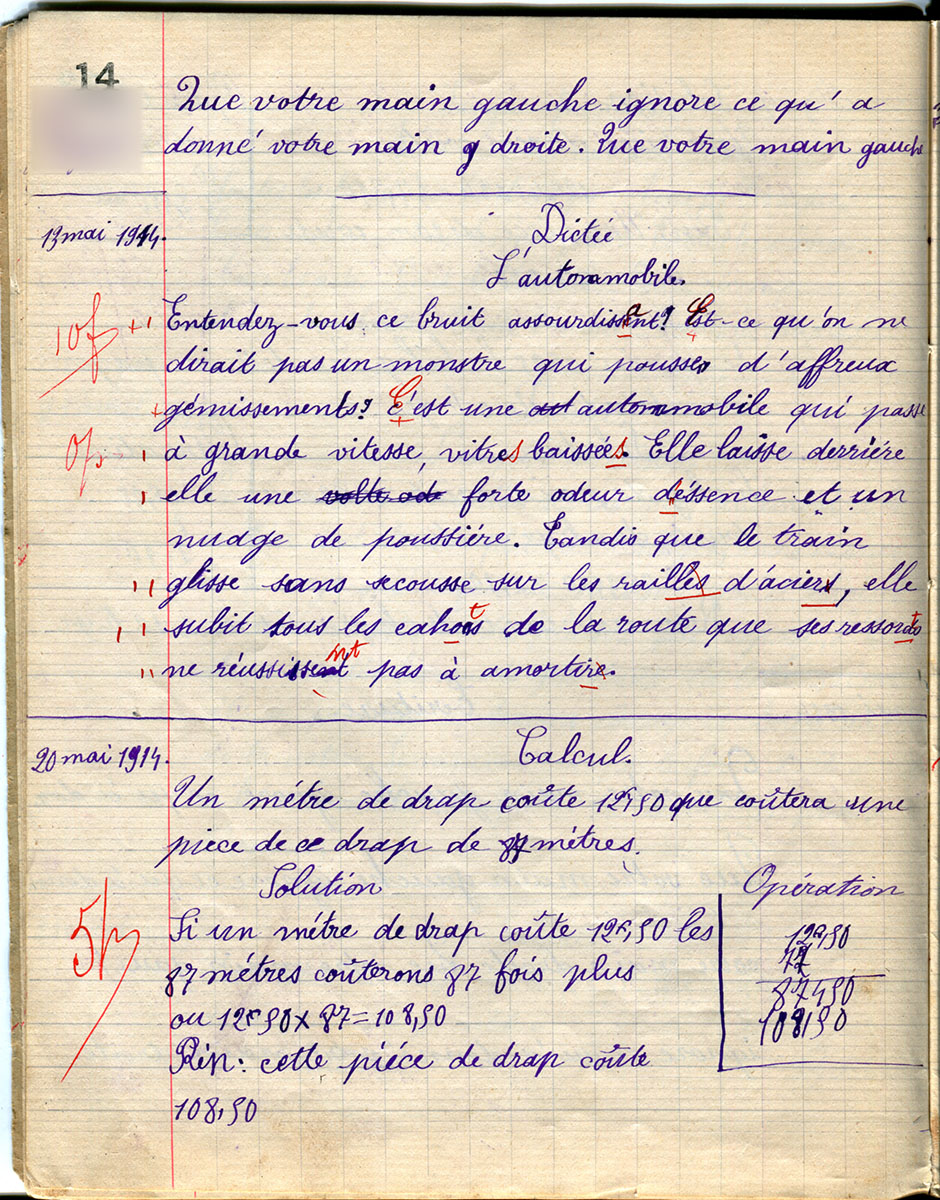 14
Que votre main gauche ignore ce qu'a
donné votre main droite. Que votre main gauche
13 mai 1914.
Dictée
L'autommobile.
10f
Entendez-vous ce bruit assourdissant? Est-ce qu'on ne
dirait pas un monstre qui pousse d'affreux
gémissements? C'est une autommobile qui passe
à grande vitesse, vitres baissées. Elle laisse derriére
elle une volte od forte odeur d'éssence et un
nuage de poussiére. Tandis que le train
glisse sans secousse sur les railles d'aciers, elle
subit tous les cahots de la route que ses ressorts
ne réussissent pas à amortire.
20 mai 1914.
Calcul.
Un métre de drap coûte 12f,50 que coûtera une
piece de ce drap de 87 métres.
Solution
Opération
Si un métre de drap coûte 12f,50 les
87 métres coûterons 87 fois plus
ou 12f 50 x 87 = 108,50
Rép: cette piéce de drap coûte
108,50
12f,50
87450
108150